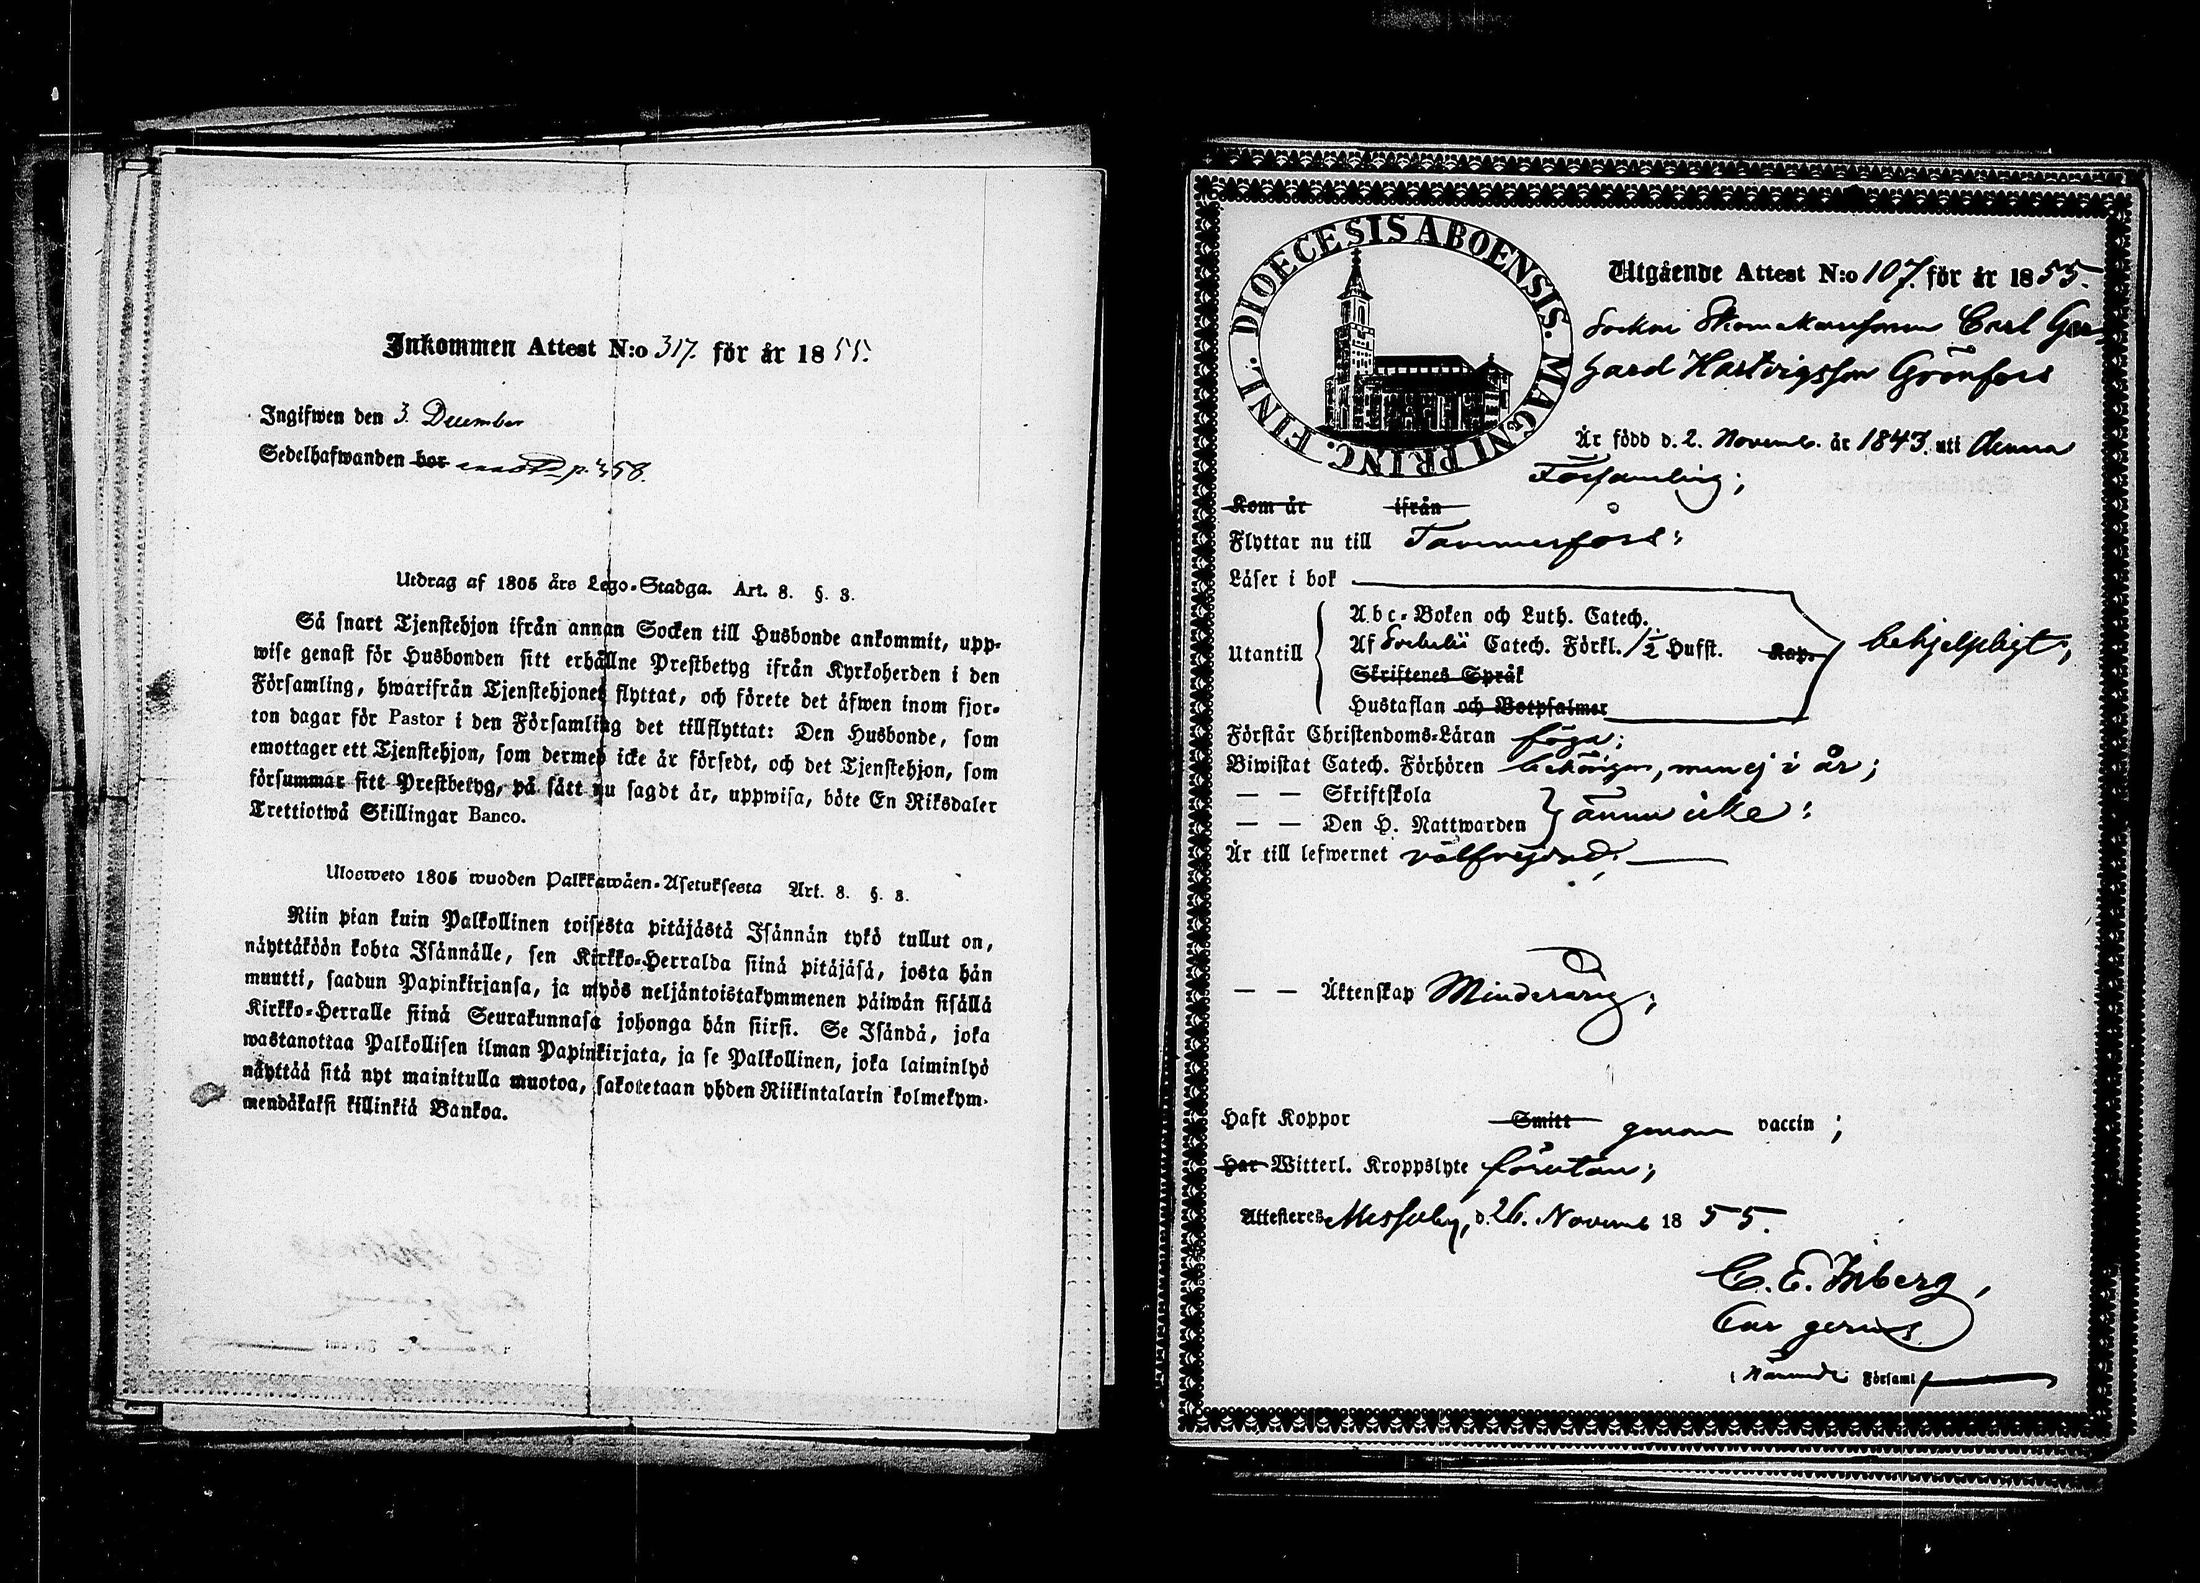 Inkommen Attest N:o 317. för år 1855.
Ingifwen den 3. December
Sedelhafwanden bor p. 458.
Utdrag af 1805 års Lego-Stadga. Art. 8. §. 3.
Så snart Tjenstehjon ifrån annan Socken till Husbonde ankommit, upp-
wise genast för Husbonden sitt erhållne Prestbetyg ifrån Kyrkoherden i den
Församling, hwarifrån Tjenstehjonet flyttat, och förete det äfwen inom fjor-
ton dagar för Pastor i den Församling det tillflyttat: Den Husbonde, som
emottager ett Tjenstehjon, som dermed icke är försedt, och det Tjenstehjon, som
försummar sitt Prestbetyg, på sätt nu sagdt är, uppwisa, böte En Riksdaler
Trettiotwå Skillingar Banco.
Ulosweto 1805 wuoden Palkkawäen-Asetuksesta Art. 8. §. 3.
Niin pian kuin Palkollinen toisesta pitäjästä Isännän tykö tullut on,
näyttäköön kohta Isännälle, sen Kirkko-Herralda siinä pitäjäsä, josta hän
muutti, saadun Papinkirjansa, ja myös neljäntoistakymmenen päiwän sisällä
Kirkko-Herralle siinä Seurakunnasa johonga hän siirsi. Se Isändä, joka
wastanottaa Palkollisen ilman Papinkirjata, ja se Palkollinen, joka laiminlyö
näyttää sitä nyt mainitulla muotoa, sakotetaan yhden Riikintalarin kolmekym-
mendäkaksi killinkiä Bankoa.
DIOECESIS ABOENSIS. MAGNI PRINC. FINL.
Utgående Attest N:o 107. för år 1855.
Socken Skomakaresonen Carl Ger-
hard Hartvigsson Grönfors
Är född d. 2. Novemb. år 1843. uti denna
Församling;
Kom år ifrån
Flyttar nu till Tammerfors:
Läser i bok
Utantill
Abc-Boken och Luth. Catech.
Af Svebelii Catech. Förkl. 1½ Hufst. Kap. behjelpligt;
Skriftenes Språk
Hustaflan och Botpsalmer
Förstår Christendoms-Läran föga;
Biwistat Catech. Förhören behörigen, men ej i år;
— — Skriftskola
— — Den H. Nattwarden ännu icke:
Är till lefwernet välfrejdad;
— — Äktenskap Minderårig;
Haft Koppor Smitt genom vaccin;
Har Witterl. Kroppslyte förutan;
Attesteres Messuby, d. 26. Novemb 1855.
C. E. Inberg,
Cur gerens
i Närvande Församl